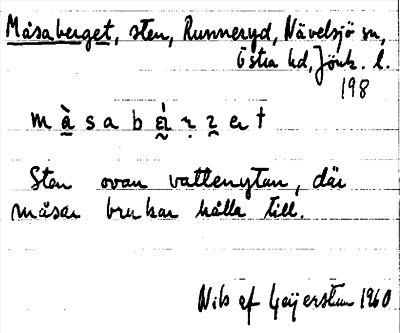 Måsaberget, sten, Runneryd, Nävelsjö sn,
Östra hd, Jönk. l.
198
Sten ovan vattenytan, där
måsar brukar hålla till.
Nils af Geijerstam 1960